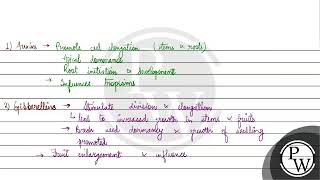 1) Auxins → Promote cell elongation (stems & roots)
Apical dominance
Root initiation & development
→ Influences tropisms
2) Gibberellins → Stimulate division & elongation
↳ leads to increased growth in stems & fruits
→ Break seed dormancy & growth of seedling promoted
→ Fruit enlargement & influence
PW